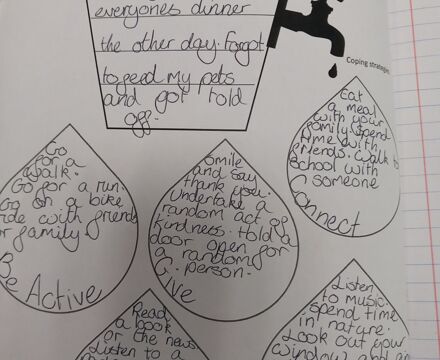 everyones dinner
the other day. Forgot
to feed my pets
and got told
off.
Coping strategies
Eat
a meal
with your
family. Spend
time with
friends. Walk to
School with
someone
Connect
Go
for a
walk.
Go for a run.
Go on a bike
ride with friends
or family.
Be Active
Smile
and say
thank you.
Undertake a
random act of
kindness. Hold a
door open for
a random
person.
Give
Read
a book
or the news
Listen to a
Listen
to music.
spend time
in nature.
Look out your
window and